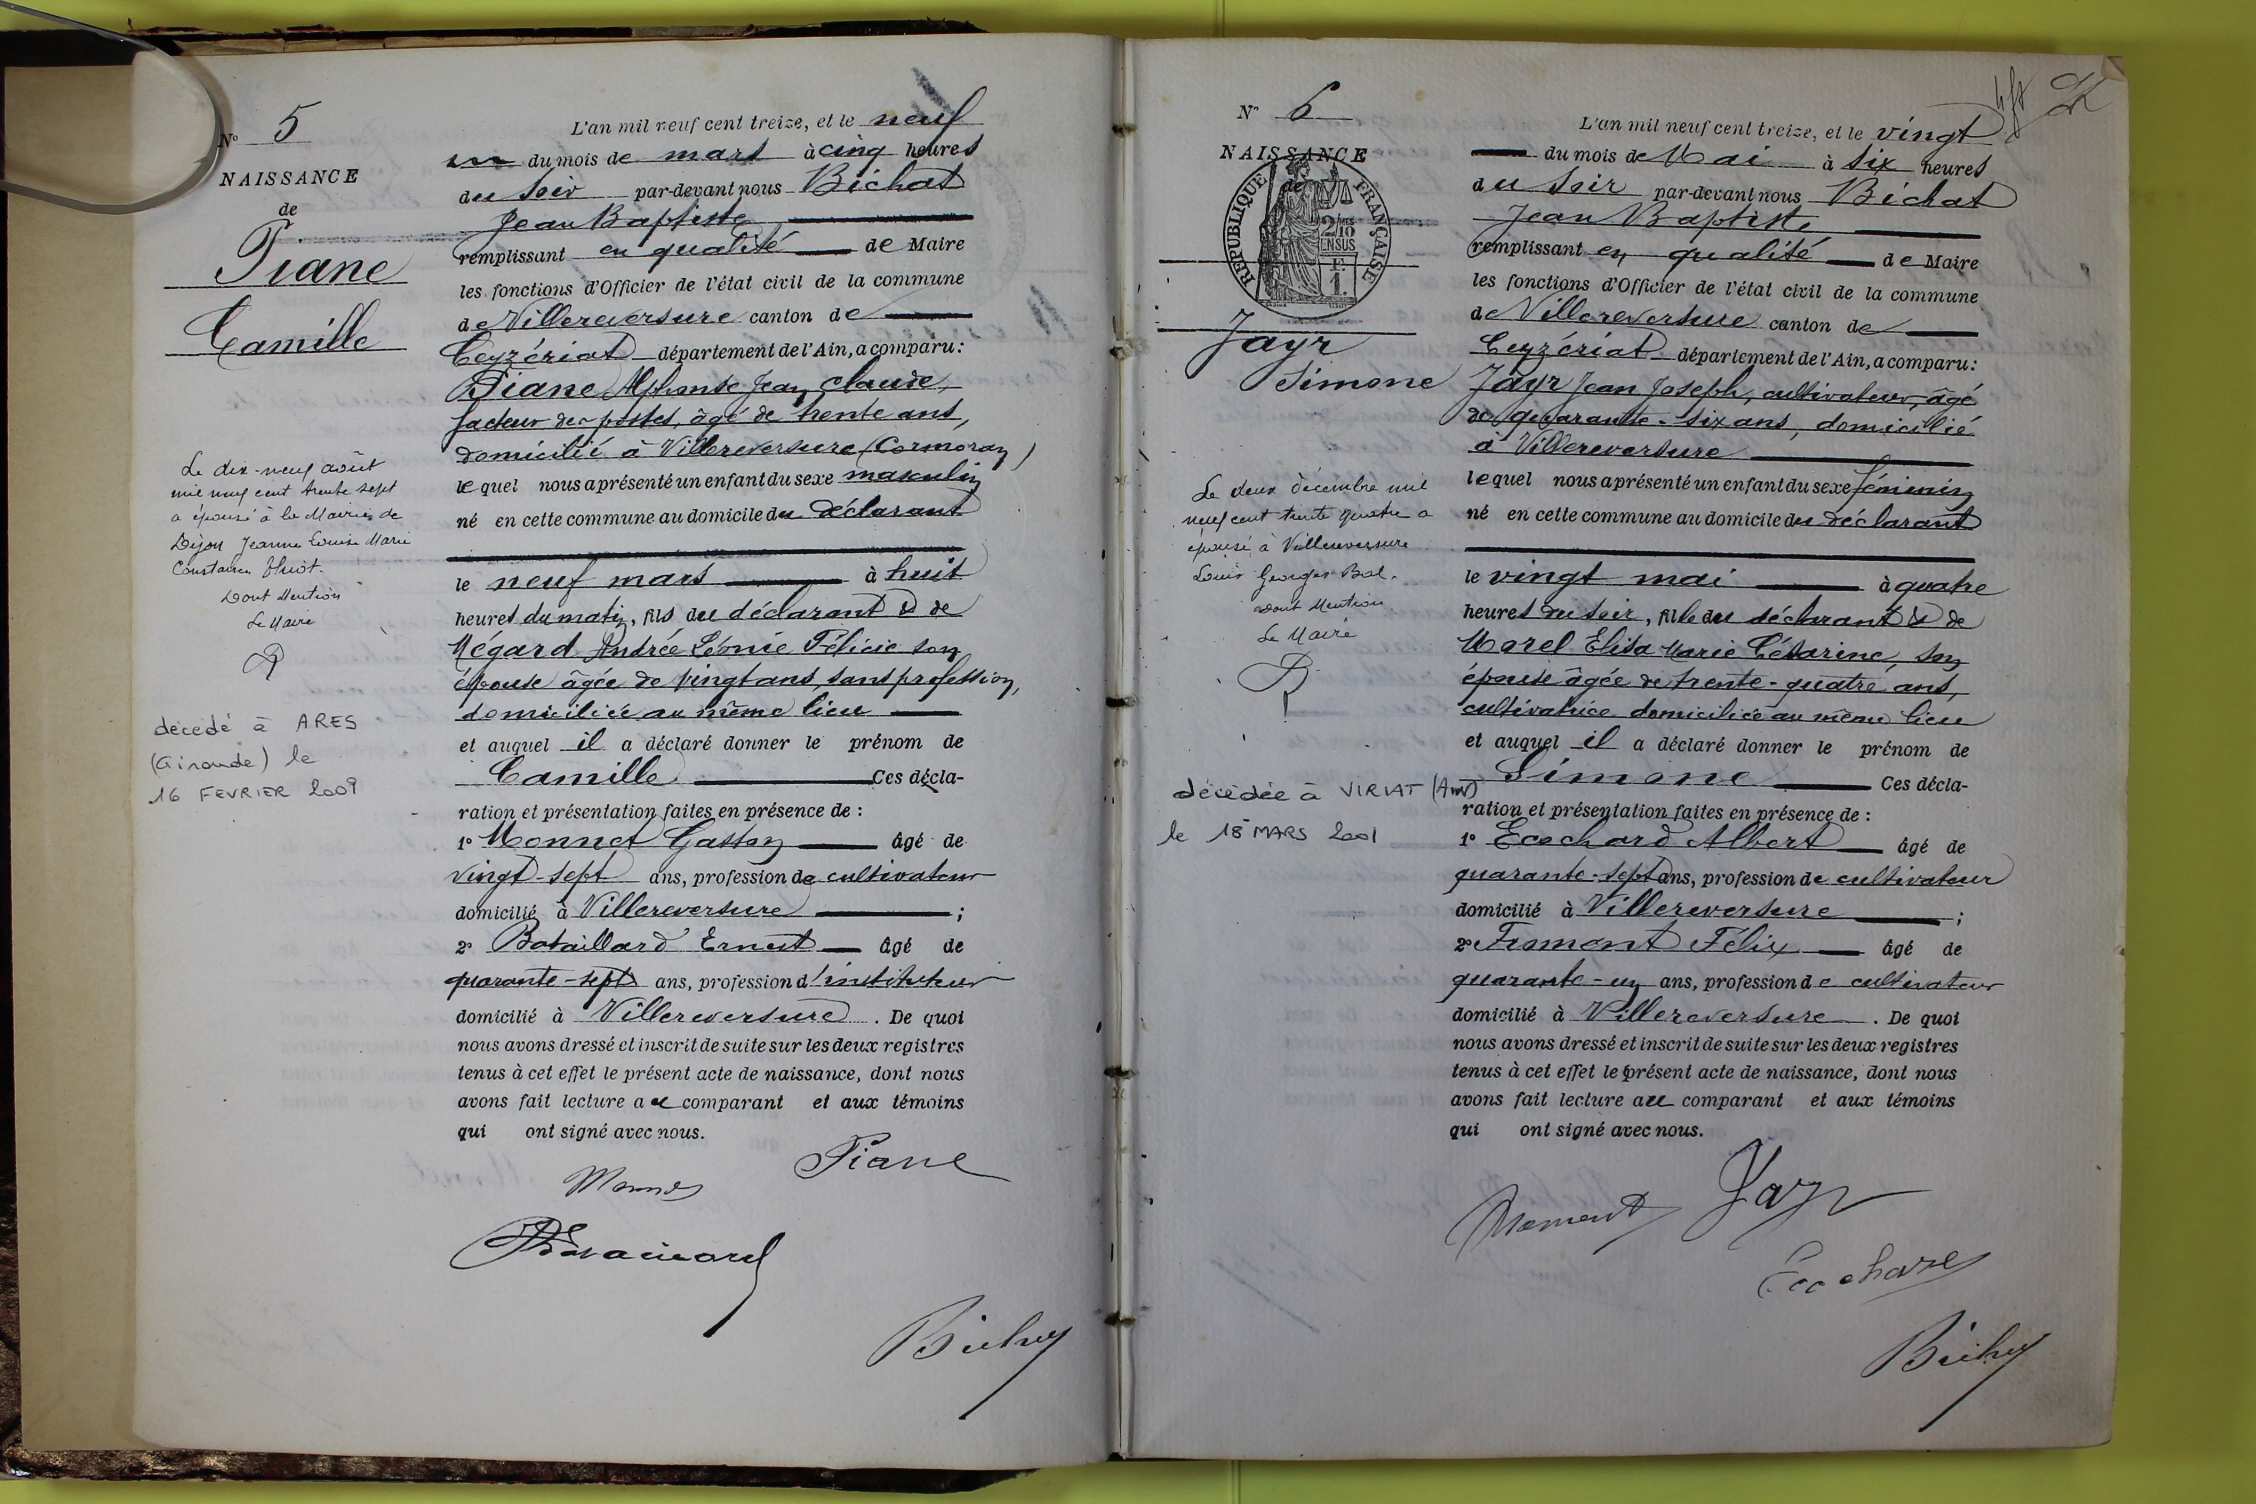 N° 5
NAISSANCE
de
Piane
Camille
Le dix-neuf août
mil neuf cent trente sept
a épousé à la Mairie de
Dijon Jeanne Louise Marie
Constance
Dont Mention
Le Maire
décédé à ARES
(Gironde) le
16 FEVRIER 2009
L'an mil neuf cent treize, et le neuf
du mois de mars à cinq heures
du soir par-devant nous Bichat
Jean Baptiste
remplissant en qualité de Maire
les fonctions d'Officier de l'état civil de la commune
de Villereversure canton de
Ceyzériat département de l'Ain, a comparu:
Piane Alphonse Jean Claude,
facteur des postes, âgé de trente ans,
domicilié à Villereversure (Cormoran)
lequel nous a présenté un enfant du sexe masculin
né en cette commune au domicile du déclarant
le neuf mars à huit
heures du matin, fils du déclarant & de
Mégard Andrée Léonie Félicie son
épouse âgée de vingt ans, sans profession,
domiciliée au même lieu
et auquel il a déclaré donner le prénom de
Camille Ces décla-
ration et présentation faites en présence de :
1° Monnet Gaston âgé de
vingt-sept ans, profession de cultivateur
domicilié à Villereversure ;
2° Bataillard Ernest âgé de
quarante-sept ans, profession d'instituteur
domicilié à Villereversure . De quoi
nous avons dressé et inscrit de suite sur les deux registres
tenus à cet effet le présent acte de naissance, dont nous
avons fait lecture au comparant et aux témoins
qui ont signé avec nous.
Piane
Monnet
Bichat
N° 6
NAISSANCE
de
RÉPUBLIQUE FRANÇAISE
2/10
EN SUS
1 F.
Jayr
Simone
Le deux décembre mil
neuf cent trente quatre a
épousé à Villereversure
Louis Georges
Dont Mention
Le Maire
décédée à VIRIAT (Ain)
le 18 MARS 2001
L'an mil neuf cent treize, et le vingt
du mois de Mai à six heures
du soir par-devant nous Bichat
Jean Baptiste
remplissant en qualité de Maire
les fonctions d'Officier de l'état civil de la commune
de Villereversure canton de
Ceyzériat département de l'Ain, a comparu:
Jayr Jean Joseph, cultivateur, âgé
de quarante-six ans, domicilié
à Villereversure
lequel nous a présenté un enfant du sexe féminin
né en cette commune au domicile du déclarant
le vingt mai à quatre
heures du soir, fille du déclarant & de
Morel Elisa Marie Césarine, son
épouse âgée de trente-quatre ans,
cultivatrice domiciliée au même lieu
et auquel il a déclaré donner le prénom de
Simone Ces décla-
ration et présentation faites en présence de :
1° Ecochard Albert âgé de
quarante-sept ans, profession de cultivateur
domicilié à Villereversure ;
2° Fromont Félix âgé de
quarante-un ans, profession de cultivateur
domicilié à Villereversure . De quoi
nous avons dressé et inscrit de suite sur les deux registres
tenus à cet effet le présent acte de naissance, dont nous
avons fait lecture au comparant et aux témoins
qui ont signé avec nous.
Fromont Jayr
Ecochard
Bichat